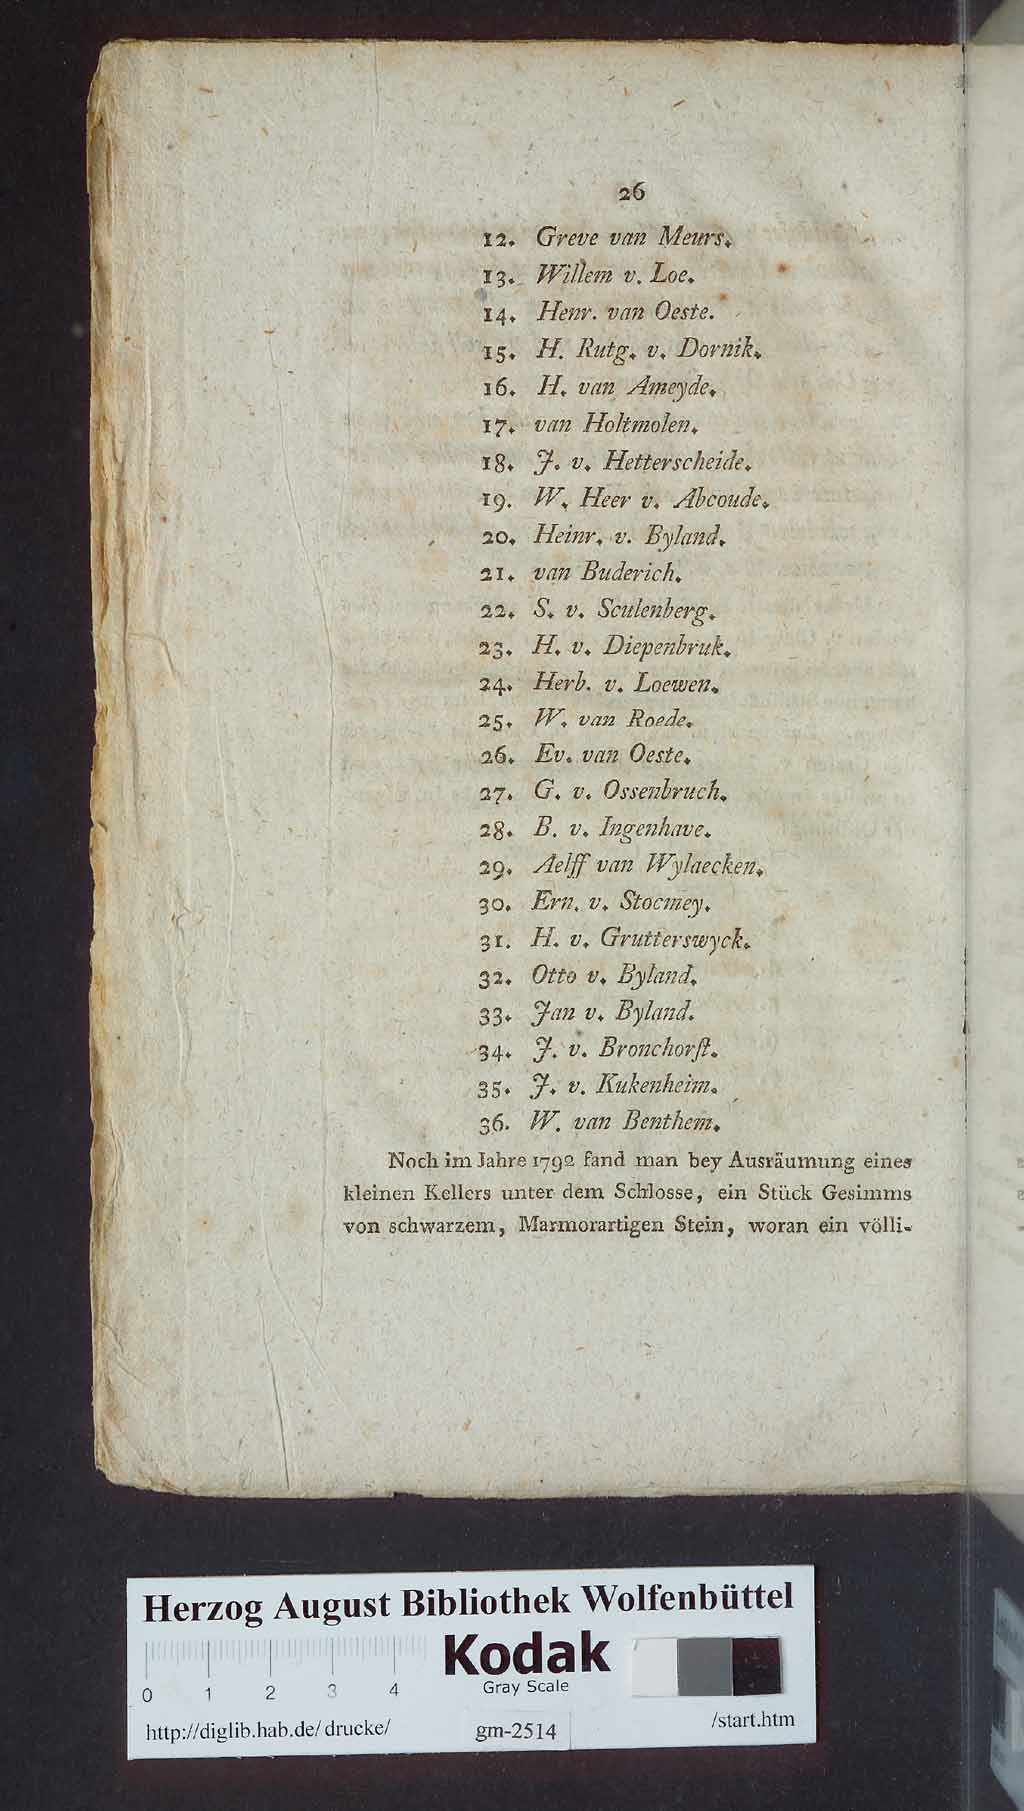 26
12. Greve van Meurs.
13. Willem v. Loe.
14. Henr. van Oeste.
15. H. Rutg. v. Dornik.
16. H. van Ameyde.
17. van Holtmolen.
18. J. v. Hetterscheide.
19. W. Heer v. Abcoude.
20. Heinr. v. Byland.
21. van Buderich.
22. S. v. Sculenberg.
23. H. v. Diepenbruk.
24. Herb. v. Loewen.
25. W. van Roede.
26. Ev. van Oeste.
27. G. v. Ossenbruch.
28. B. v. Ingenhave.
29. Aelff van Wylaecken.
30. Ern. v. Stocmey.
31. H. v. Grutterswyck.
32. Otto v. Byland.
33. Jan v. Byland.
34. J. v. Bronchorſt.
35. J. v. Kukenheim.
36. W. van Benthem.
Noch im Jahre 1792 fand man bey Ausräumung eines
kleinen Kellers unter dem Schlosse, ein Stück Gesimms
von schwarzem, Marmorartigen Stein, woran ein völli-
Herzog August Bibliothek Wolfenbüttel
Kodak
Gray Scale
0 1 2 3 4
http://diglib.hab.de/drucke/ gm-2514 /start.htm